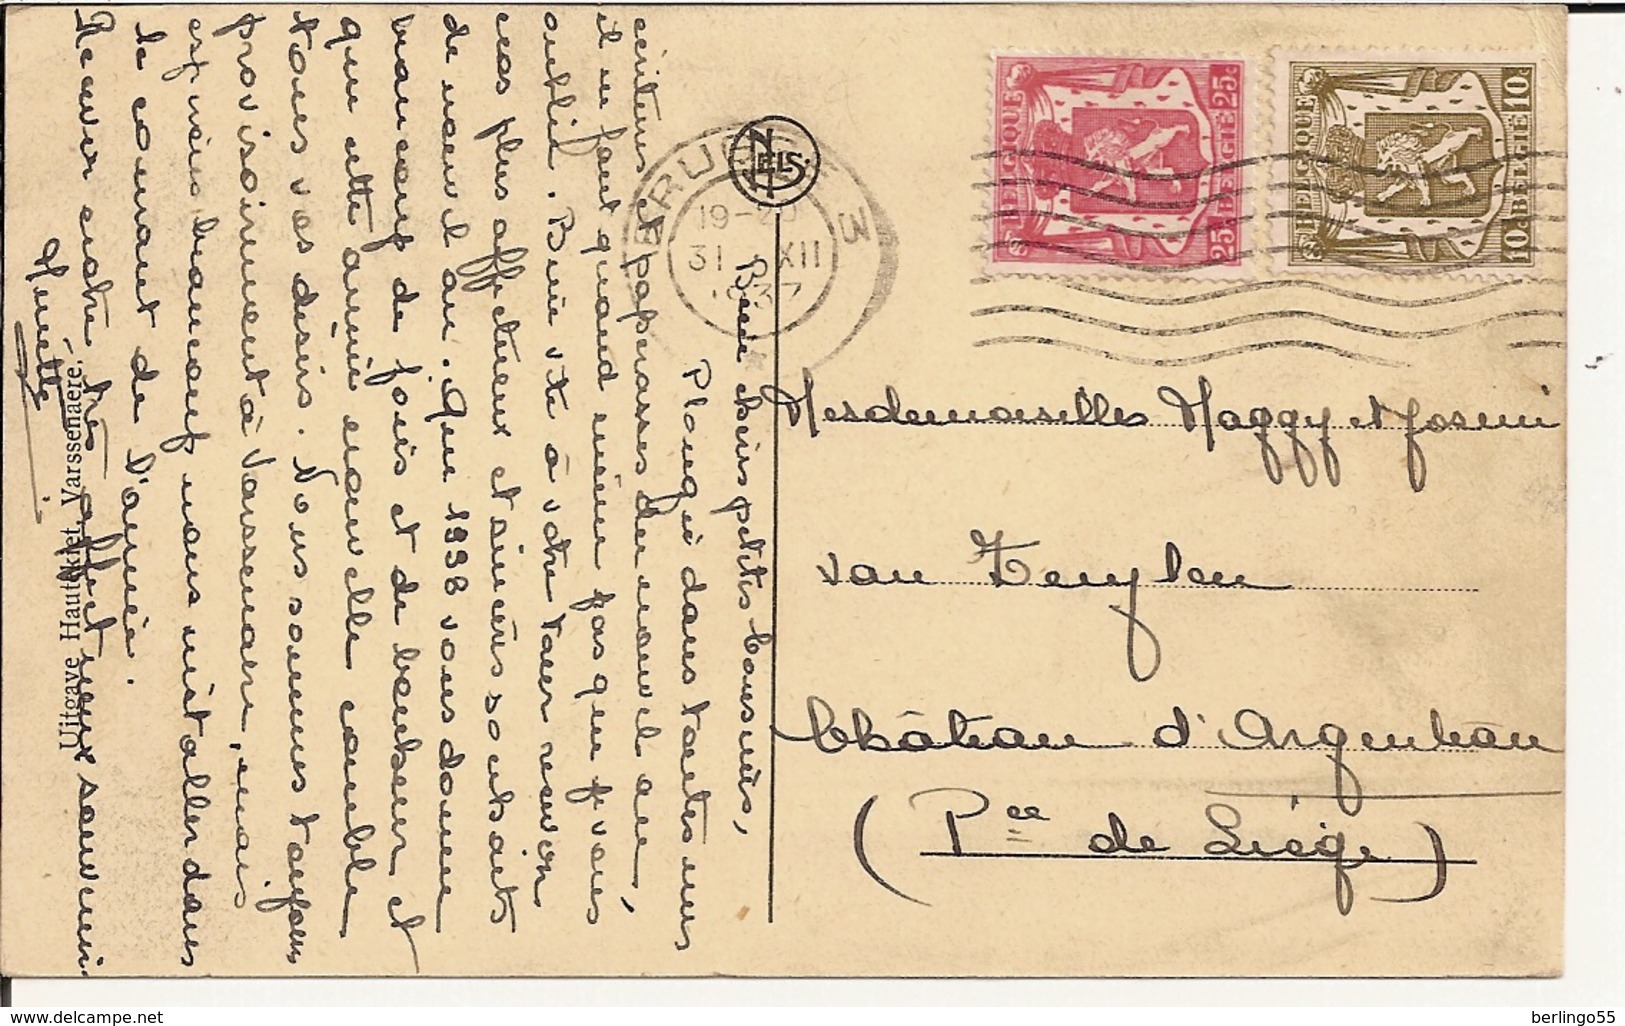 Bien chères petites cousines,
Plongée dans toutes mes
écritures et paperasses du nouvel an,
il ne faut quand même pas que je vous
oublie. Bien vite à votre tour recevoir
ces plus affectueux et sincères souhaits
de nouvel an. Que 1938 vous donne
beaucoup de joies et de bonheur et
que cette année nouvelle comble
tous vos désirs. Nous sommes toujours
provisoirement à Varssenaere, mais
espérons beaucoup nous installer dans
le courant de l'année.
Recevez notre très affectueux souvenir
Ninette
Uitgave Hautekiet, Varssenaere.
NELS
BRUGGE 3
19-20
31 XII
1937
BELGIQUE 25c
25c BELGIË
BELGIQUE 10c
10c BELGIË
Mesdemoiselles Maggy et Josemi
van Zeuylen
Château d'Argenteau
(Pce de Liège)
delcampe.net
berlingo55